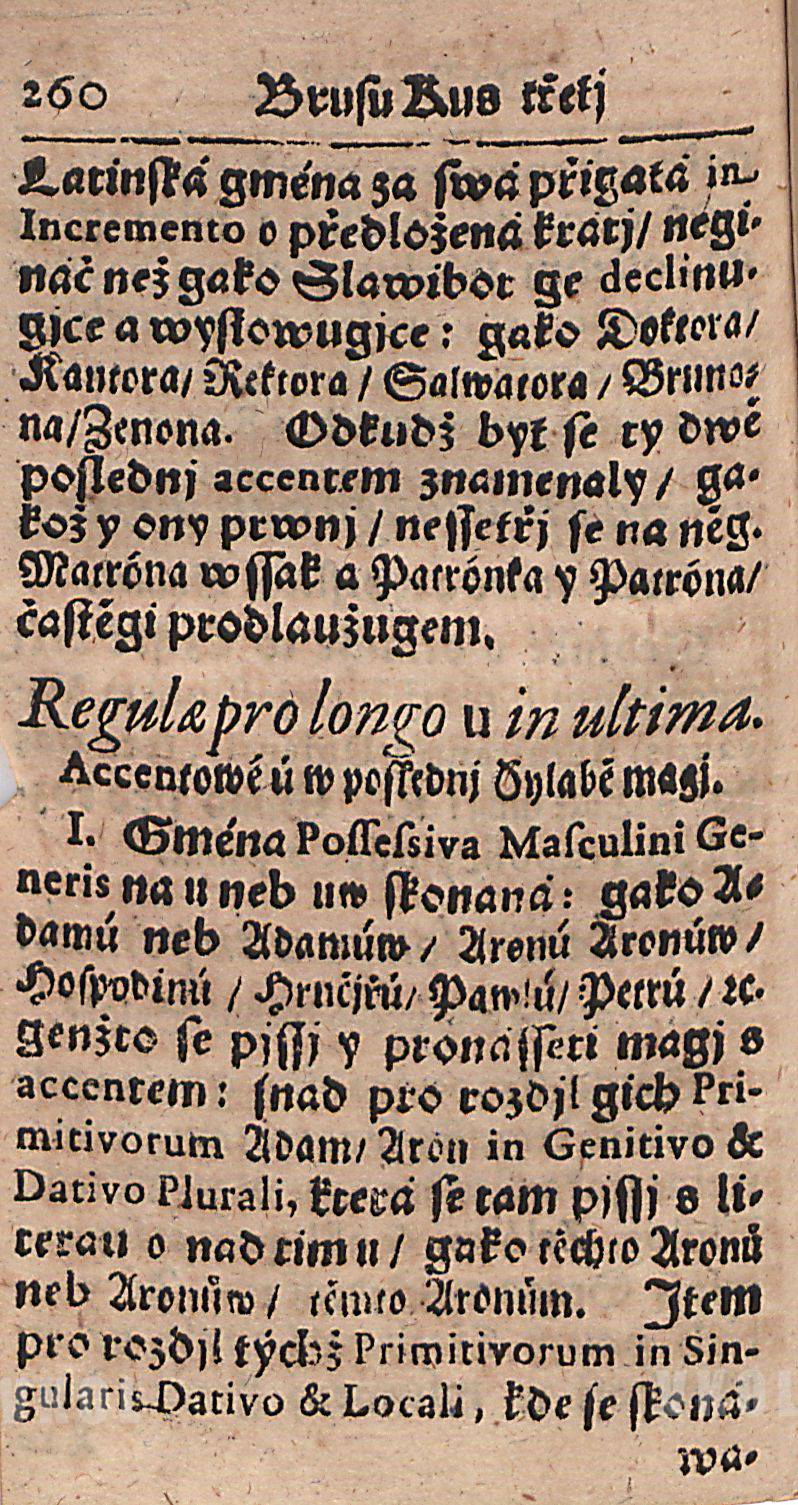 260 Bruſu Kus třetj
Latinſká gména za ſwá přigatá in
Incremento o předložená krátj/ negi-
náč než gako Slawibot ge declinu-
gjce a wyſlowugjce: gako Doktora/
Kantora/ Rektora / Salwatora / Bruno-
na/Zenona. Odkudž byť ſe ty dwě
poſlednj accentem znamenaly / ga-
kož y ony prwnj / neſſetřj ſe na něg.
Matróna wſſak a Patrónka y Patróna/
čaſtěgi prodlaužugem.
Regulæ pro longo u in ultima.
Accentowé ú w poſlednj Sylabě magj.
I. Gména Poſſeſsiva Maſculini Ge-
neris na u neb uw ſkonaná: gako A-
damú neb Adamúw / Aronú Aronúw /
Hoſpodinú / Hrnčjřú/ Pawlú/ Petrú / ꝛc.
genžto ſe pjſſj y pronáſſeti magj s
accentem: ſnad pro rozdjl gich Pri-
mitivorum Adam/ Aron in Genitivo &
Dativo Plurali, která ſe tam pjſſj s li-
terau o nad tim u / gako těchto Aronů
neb Aronůw / těmto Aronům. Jtem
pro rozdjl týchž Primitivorum in Sin-
gularis Dativo & Locali, kde ſe ſkoná-
wa-